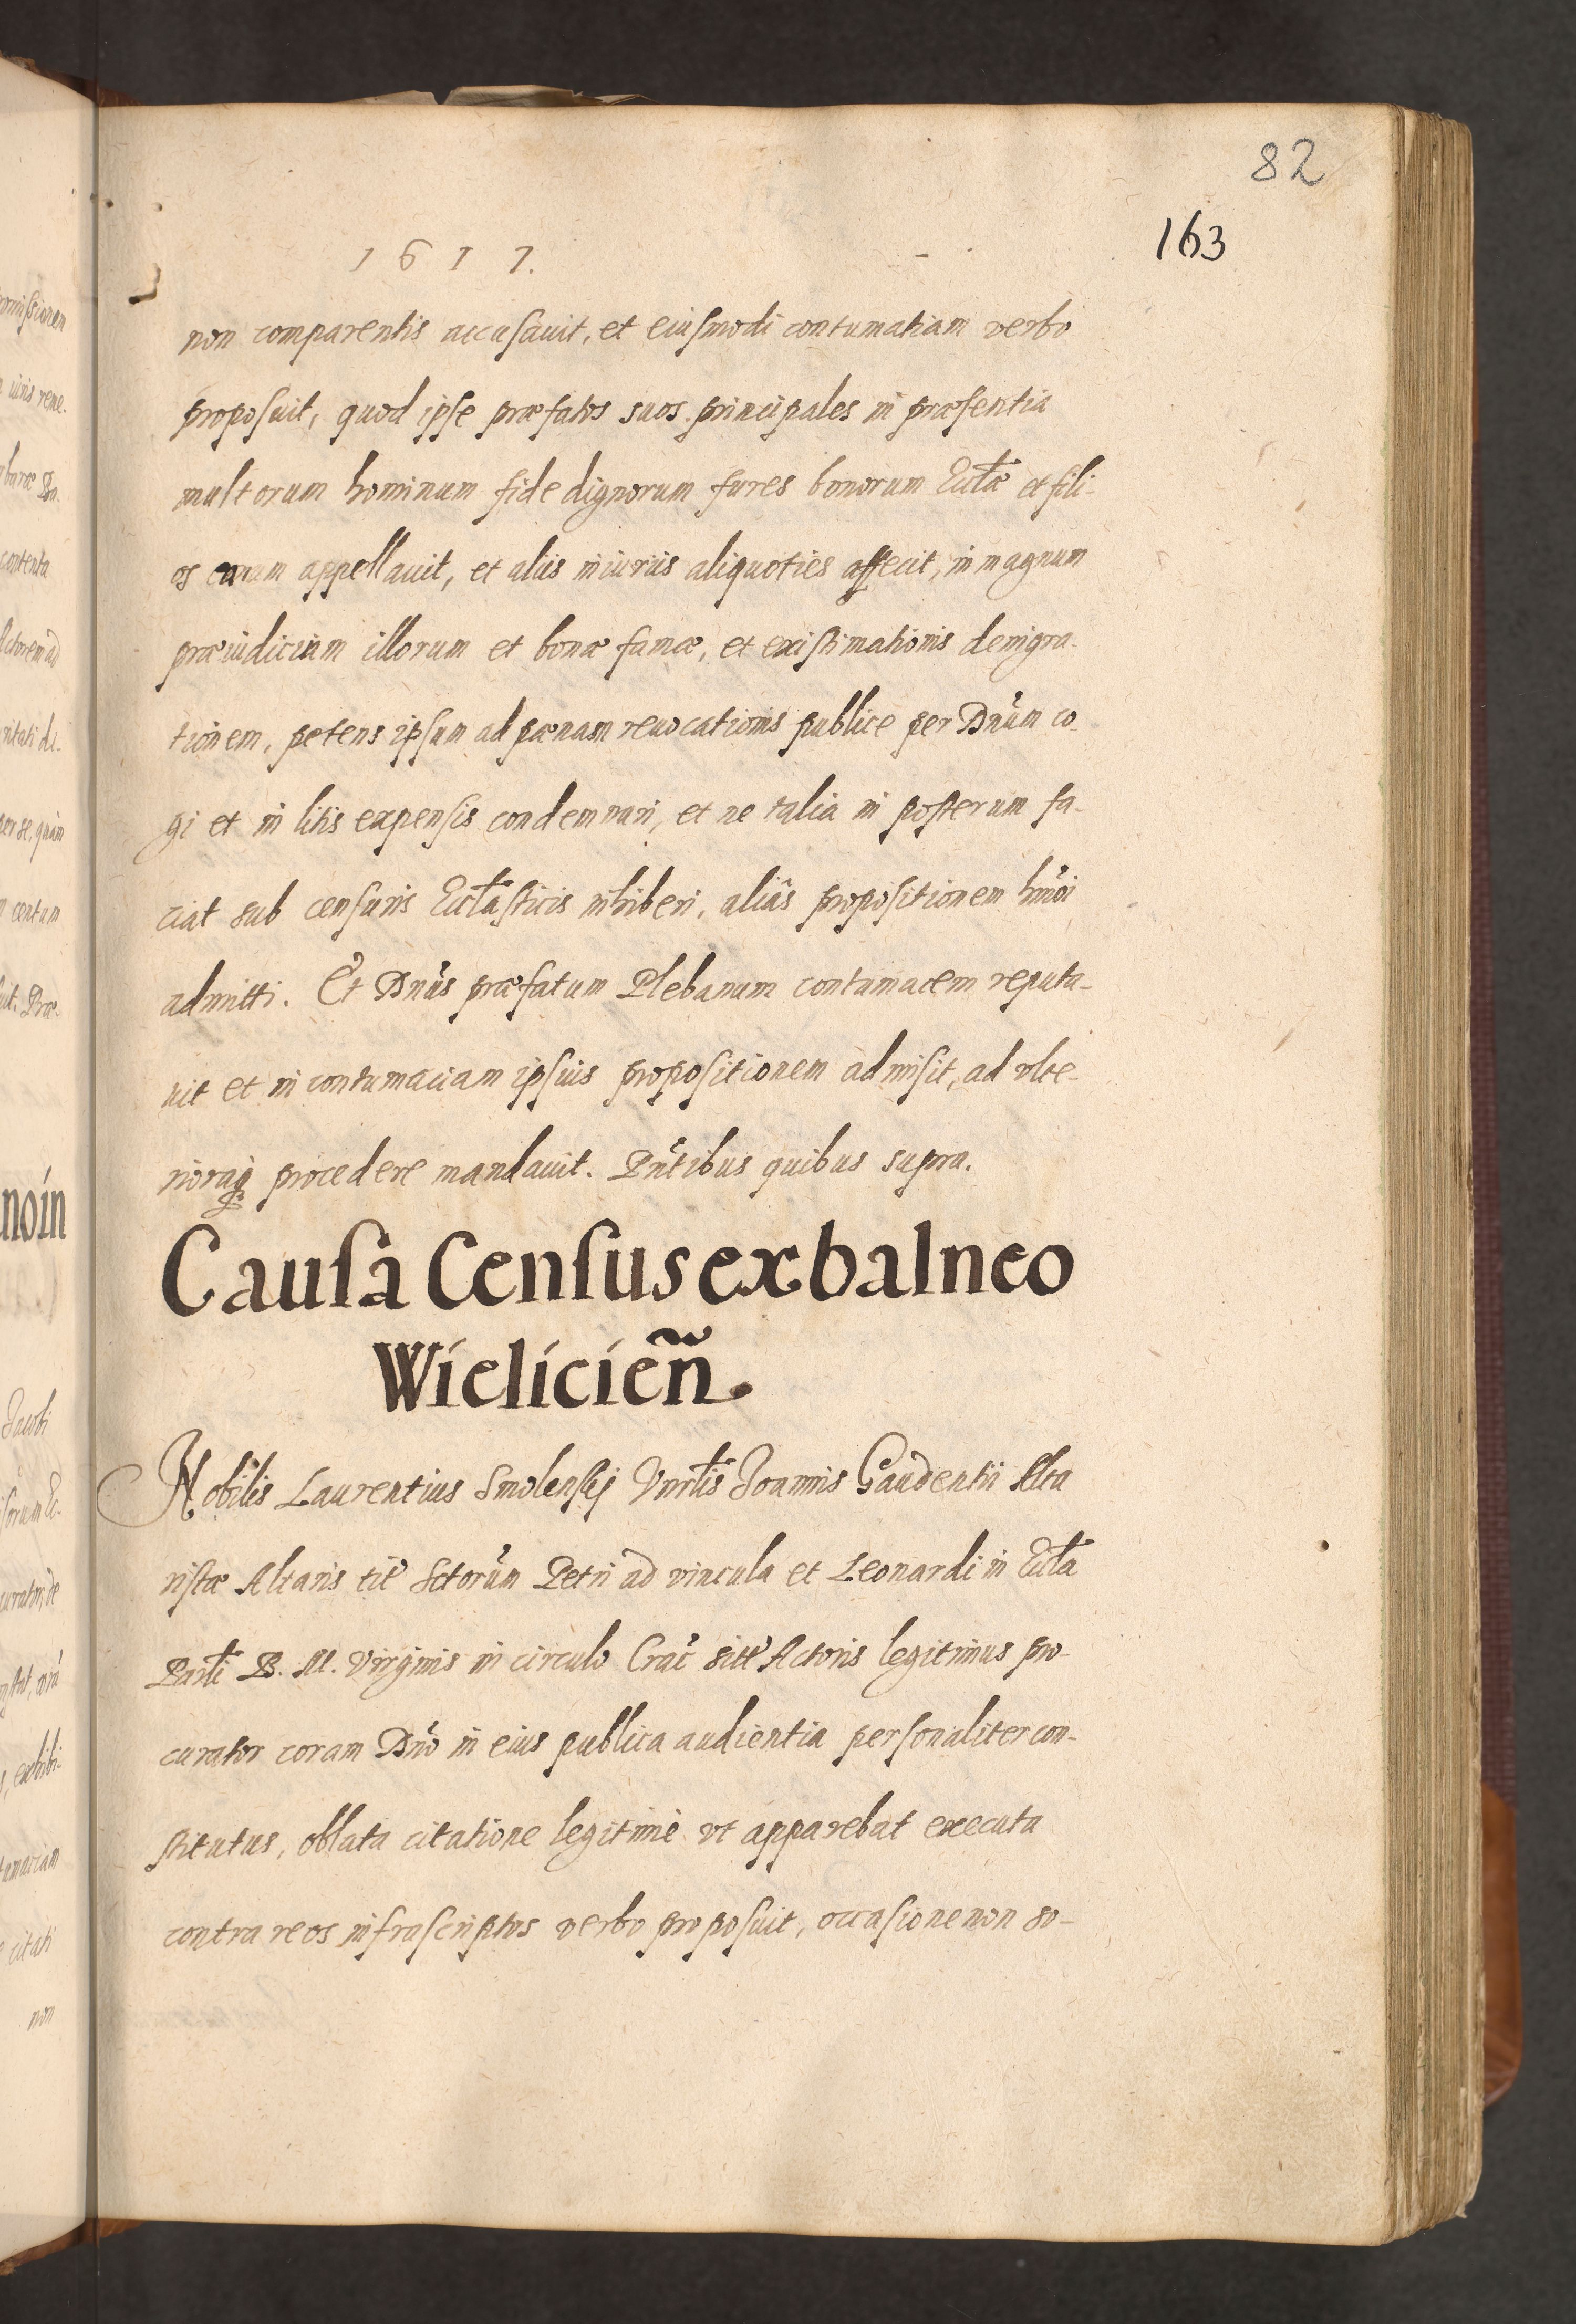 82
163
1 6 1 7.
non comparentis accusauit, et eiusmodi contumatiam verbo
proposuit, quod ipse præfatos suos principales in præsentia
multorum hominum fide dignorum fures bonorum Eccl̃æ et fili-
os earum appellauit, et aliis iniuriis aliquoties affecit, in magnum
præiudicium illorum et bonæ famæ, et existimationis denigra-
tionem, petens ipsum ad pænam reuocationis publice per Dñum co-
gi et in litis expensis condemnari, et ne talia in posterum fa-
ciat sub censuris Eccl̃asticis inhiberi, aliâs propositionem hmõi
admitti. Et Dñus præfatum Plebanum contumacem reputa-
uit et in contumaciam ipsius propositionem admisit, ad vlte-
rioraq; procedere mandauit. Pñtibus quibus supra.
Causa Census ex balneo
Wielicień.
Nobilis Laurentius Smolenskij Vnrl̃is Joannis Gaudentii Alta
ristæ Altaris tit̃ Sctorũm Petri ad vincula et Leonardi in Eccl̃a
Parl̃i B. M. Virginis in circulo Crac̃ sitt̃ Actoris legitimus pro-
curator coram Dño in eius publica audientia personaliter con-
stitutus, oblata citatione legitimè vt apparebat executa
contra reos infrascriptos verbo proposuit, occasione non so-